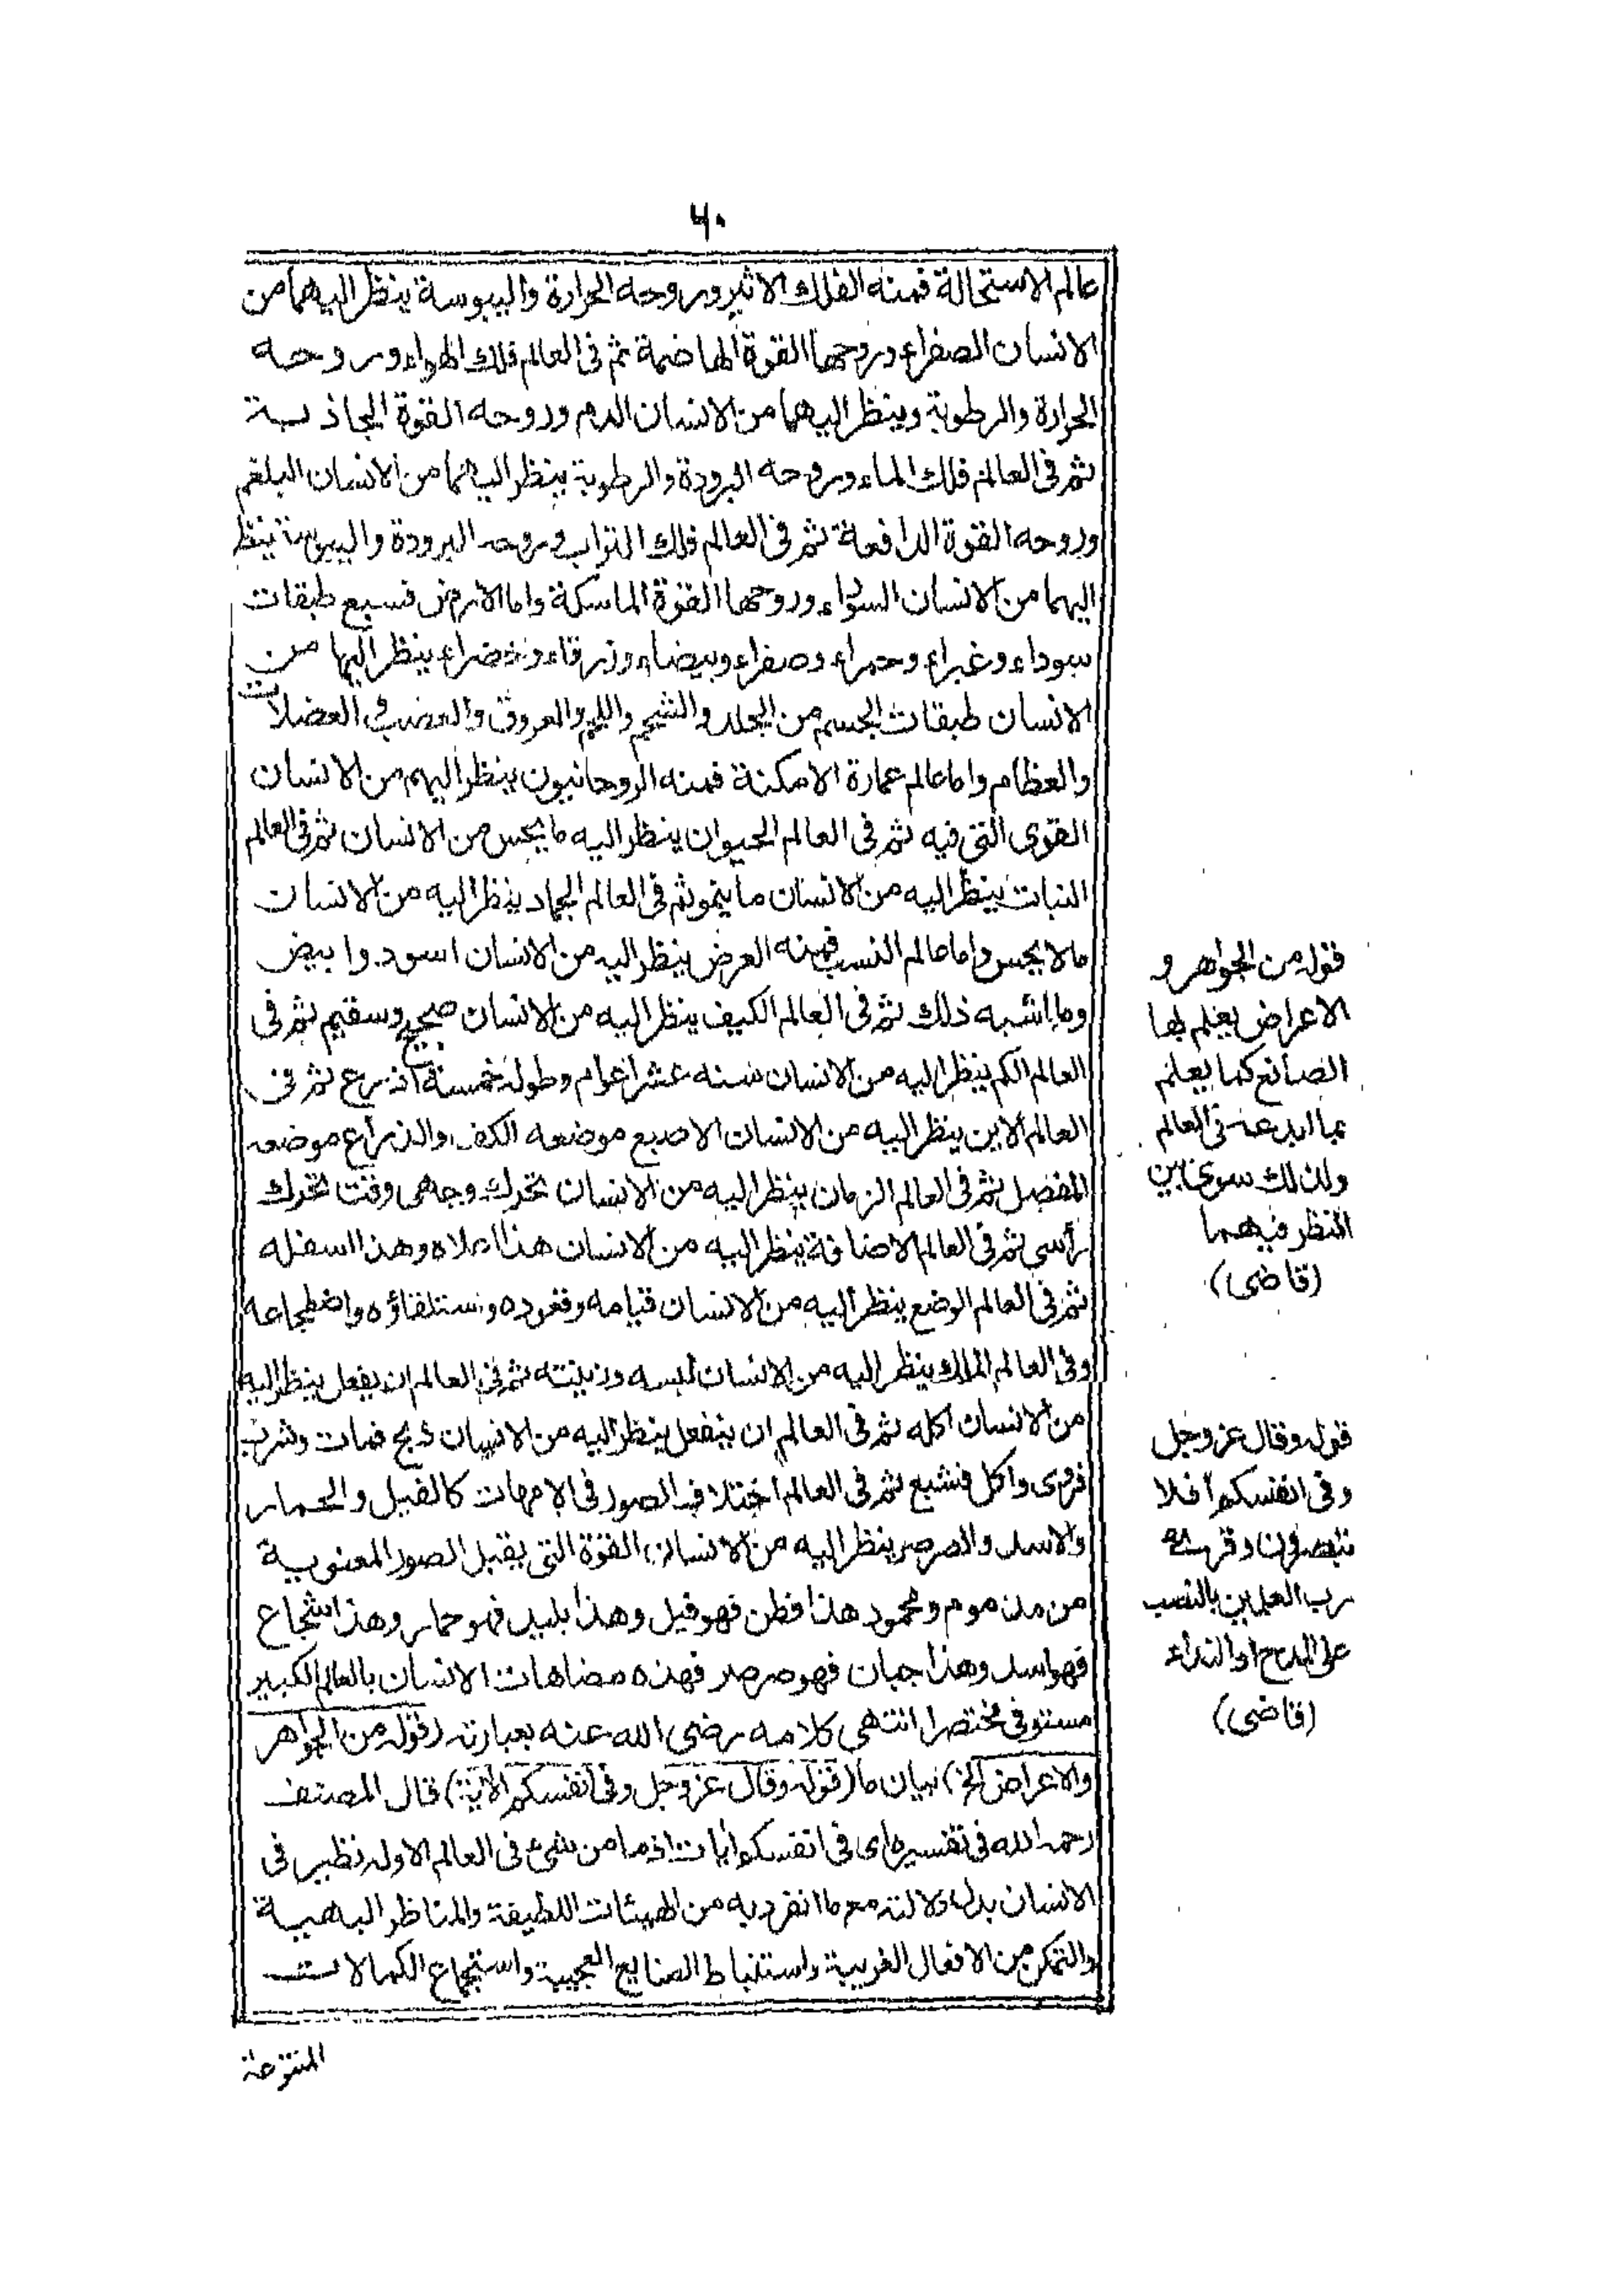 ٦٠
عالم الاستحالة فمنه الفلك الاثير وروحه الحرارة واليبوسة ينظر اليهما من
الانسان الصفراء وروحها القوة الهاضمة ثم فى العالم فلك الهواء وروحه
الحرارة والرطوبة وينظر اليهما من الانسان الدم وروحه القوة الجاذبة
ثم فى العالم فلك الماء وروحه البرودة والرطوبة ينظر اليهما من الانسان البلغم
وروحه القوة الدافعة ثم فى العالم فلك التراب وروحه البرودة واليبوسة ينظر
اليهما من الانسان السوداء وروحها القوة الماسكة واما الارض فسبع طبقات
سوداء وغبراء وحمراء وصفراء وبيضاء وزرقاء وخضراء ينظر اليها من
الانسان طبقات الجسم من الجلد والشحم واللحم والعروق والعصب فى العضلات
والعظام واما عالم عمارة الامكنة فمنه الروحانيون ينظر اليهم من الانسان
القوى التى فيه ثم فى العالم الحيوان ينظر اليه ما يحس من الانسان ثم فى العالم
النبات ينظر اليه من الانسان ما ينمو ثم فى العالم الجماد ينظر اليه من الانسان
ما لا يحس واما عالم النسب فمنه العرض ينظر اليه من الانسان اسود وابيض
وما اشبه ذلك ثم فى العالم الكيف ينظر اليه من الانسان صحيح وسقيم ثم فى
العالم الكم ينظر اليه من الانسان سنه عشر اعوام وطوله خمسة اذرع ثم فى
العالم الاين ينظر اليه من الانسان الاصبع موضعه الكف والذراع موضعه
المفصل ثم فى العالم الزمان ينظر اليه من الانسان تحرك وجهى وقت تحرك
رأسى ثم فى العالم الاضافة ينظر اليه من الانسان هذا اعلاه وهذا اسفله
ثم فى العالم الوضع ينظر اليه من الانسان قيامه وقعوده واستلقاؤه واضطجاعه
وفى العالم الملك ينظر اليه من الانسان لبسه وزينته ثم فى العالم ان يفعل ينظر اليه
من الانسان اكله ثم فى العالم ان ينفعل ينظر اليه من الانسان ذبح فمات وشرب
فروى واكل فشبع ثم فى العالم اختلاف الصور فى الامهات كالفيل والحمار
والاسد والصرصر ينظر اليه من الانسان القوة التى يقبل الصور المعنوية
من مذموم ومحمود هذا فطن فهو فيل وهذا بليد فهو حمار وهذا شجاع
فهو اسد وهذا جبان فهو صرصر فهذه مضاهات الانسان بالعالم الكبير
مستوفى مختصرا انتهى كلامه رضى الله عنه بعبارته (قوله من الجواهر
والاعراض الخ) بيان ما (قوله وقال عز وجل وفى انفسكم الآية) قال المصنف
رحمه الله فى تفسيره اى فى انفسكم ايات اذ ما من شئ فى العالم الا وله نظير فى
الانسان يدل دلالته مع ما انفرد به من الهيئات اللطيفة والمناظر البهية
والتمكن من الافعال الغريبة واستنباط الصنايع العجيبة واستجماع الكمالات
المتنوعة
قوله من الجواهر و
الاعراض يعلم بها
الصانع كما يعلم
بما ابدعه فى العالم
ولذلك سوى بين
النظر فيهما
(قاضى)
قوله وقال عز وجل
وفى انفسكم افلا
تبصرون وقرئ
رب العلمين بالنصب
على المدح او النداء
(قاضى)